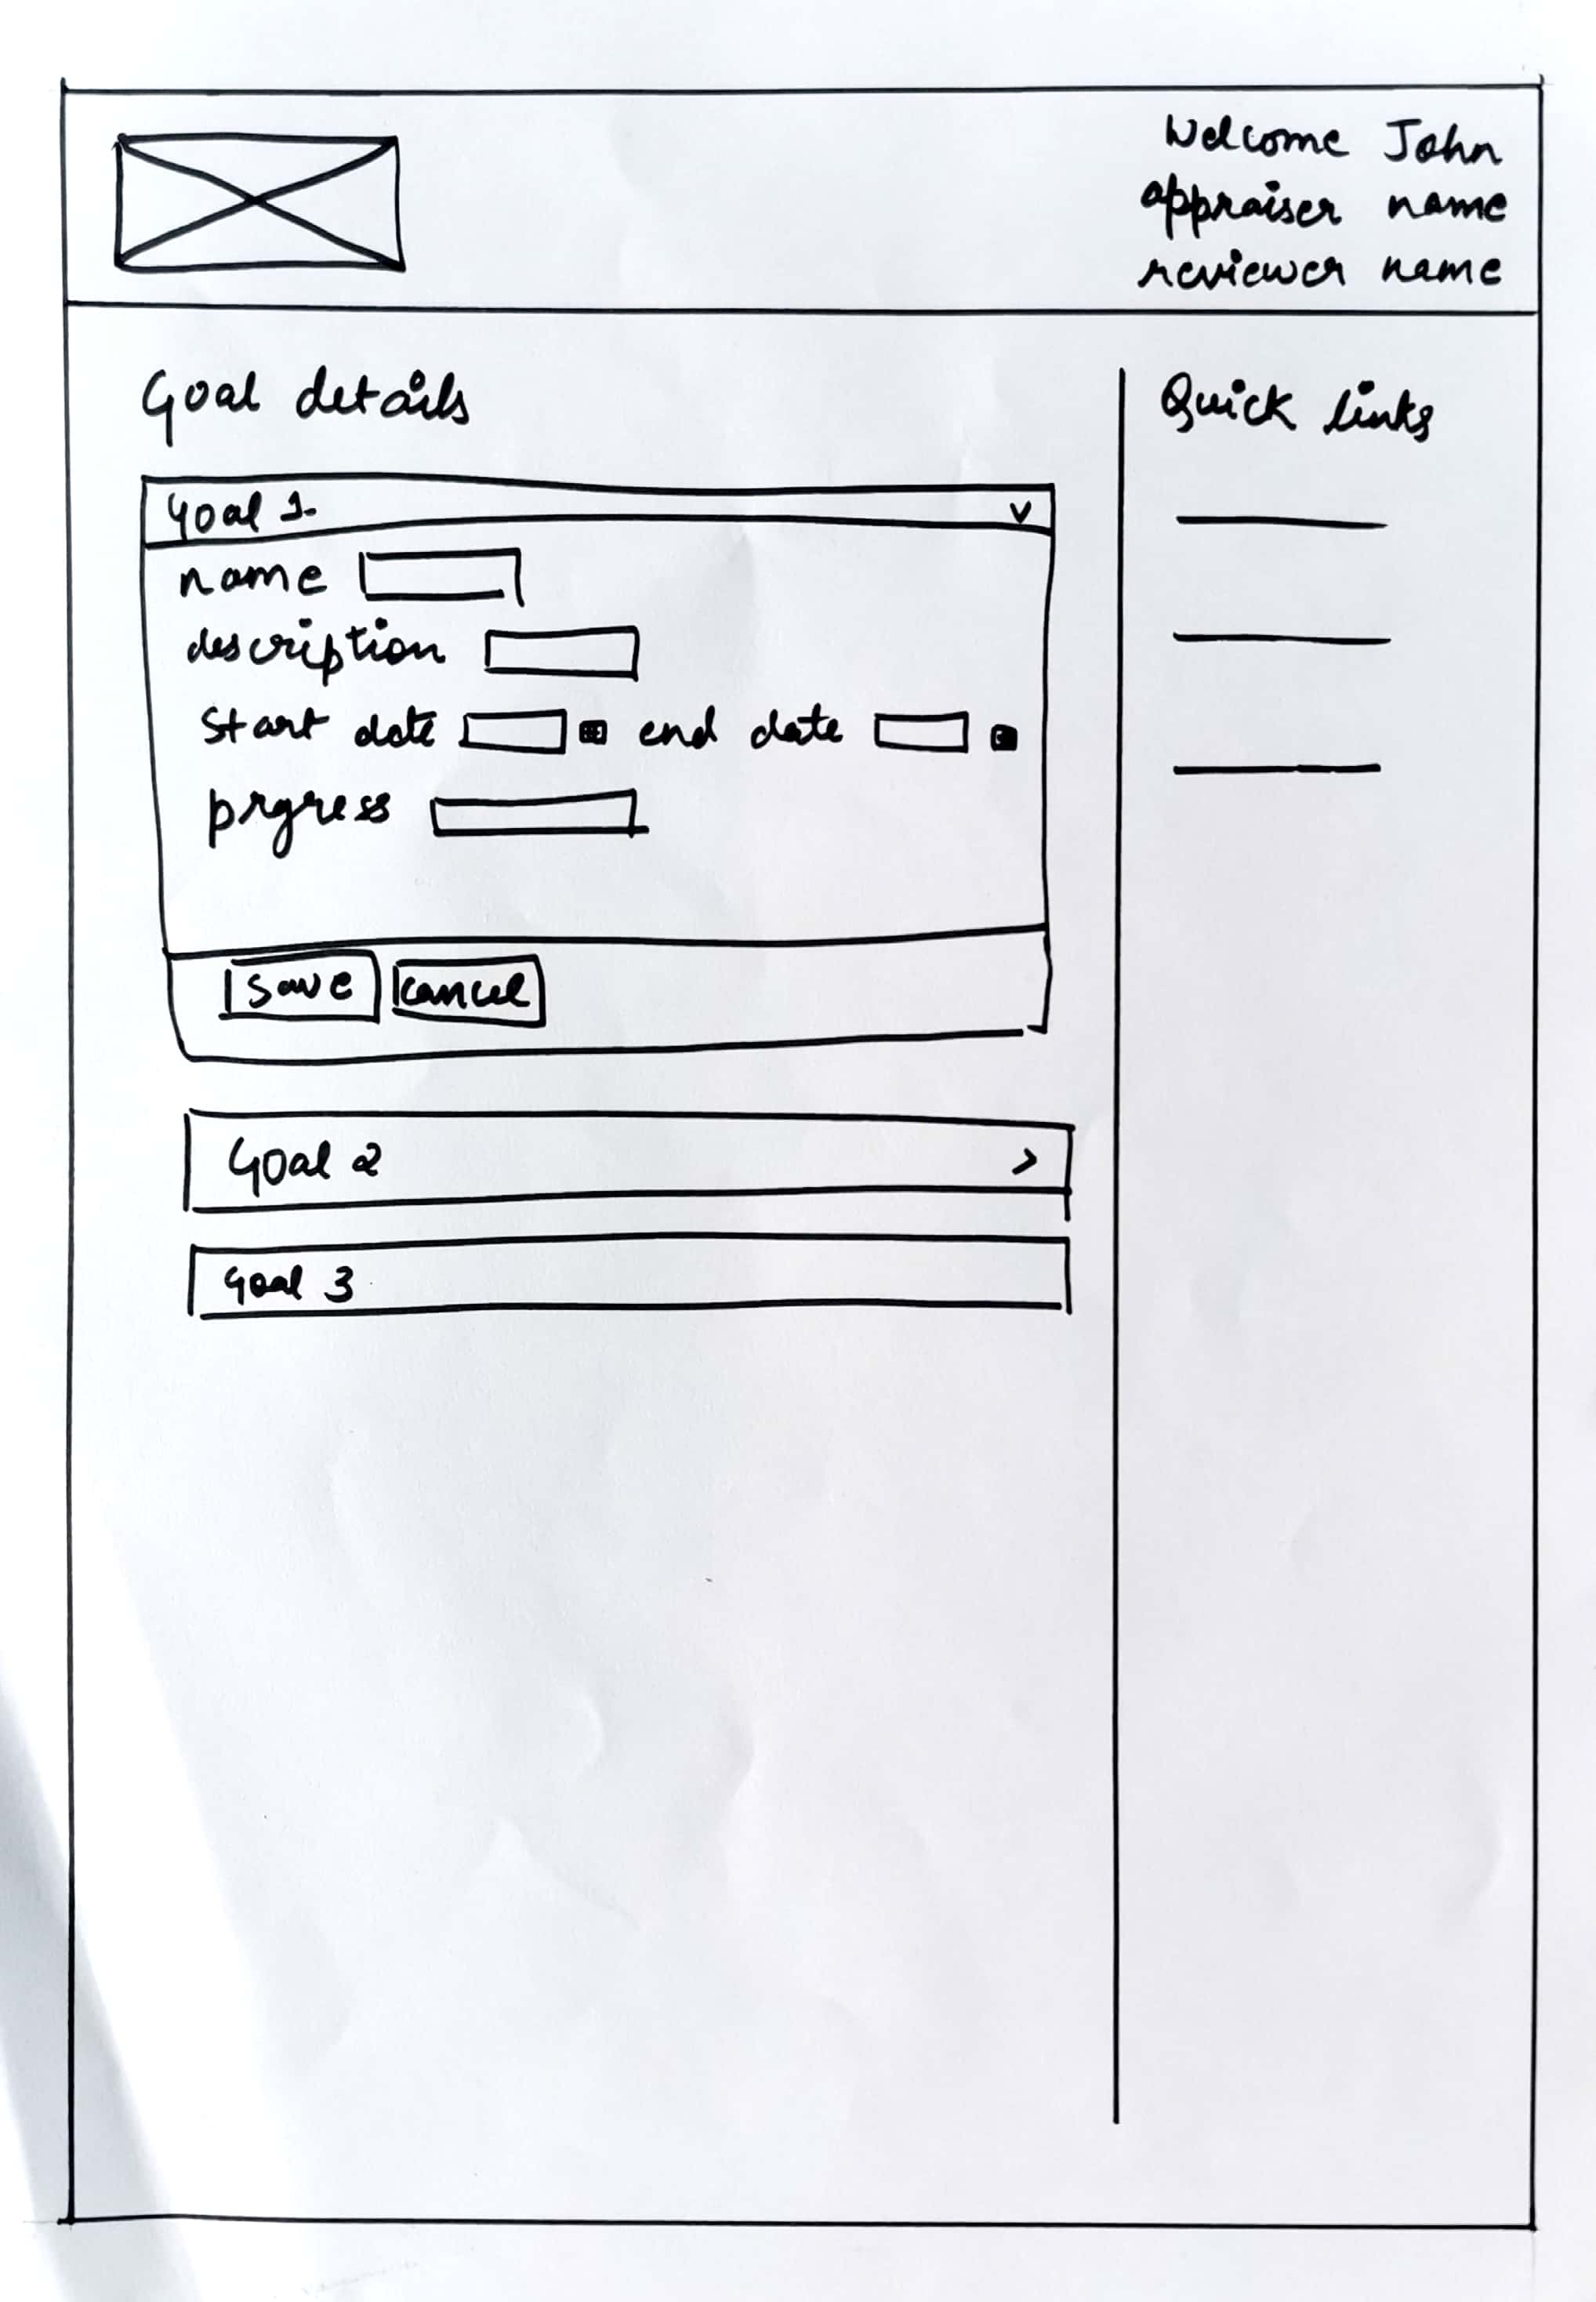 Welcome John
appraiser name
reviewer name
Goal details
Quick links
Goal 1.
name
description
start date end date
prgress
save cancel
Goal 2 >
Goal 3